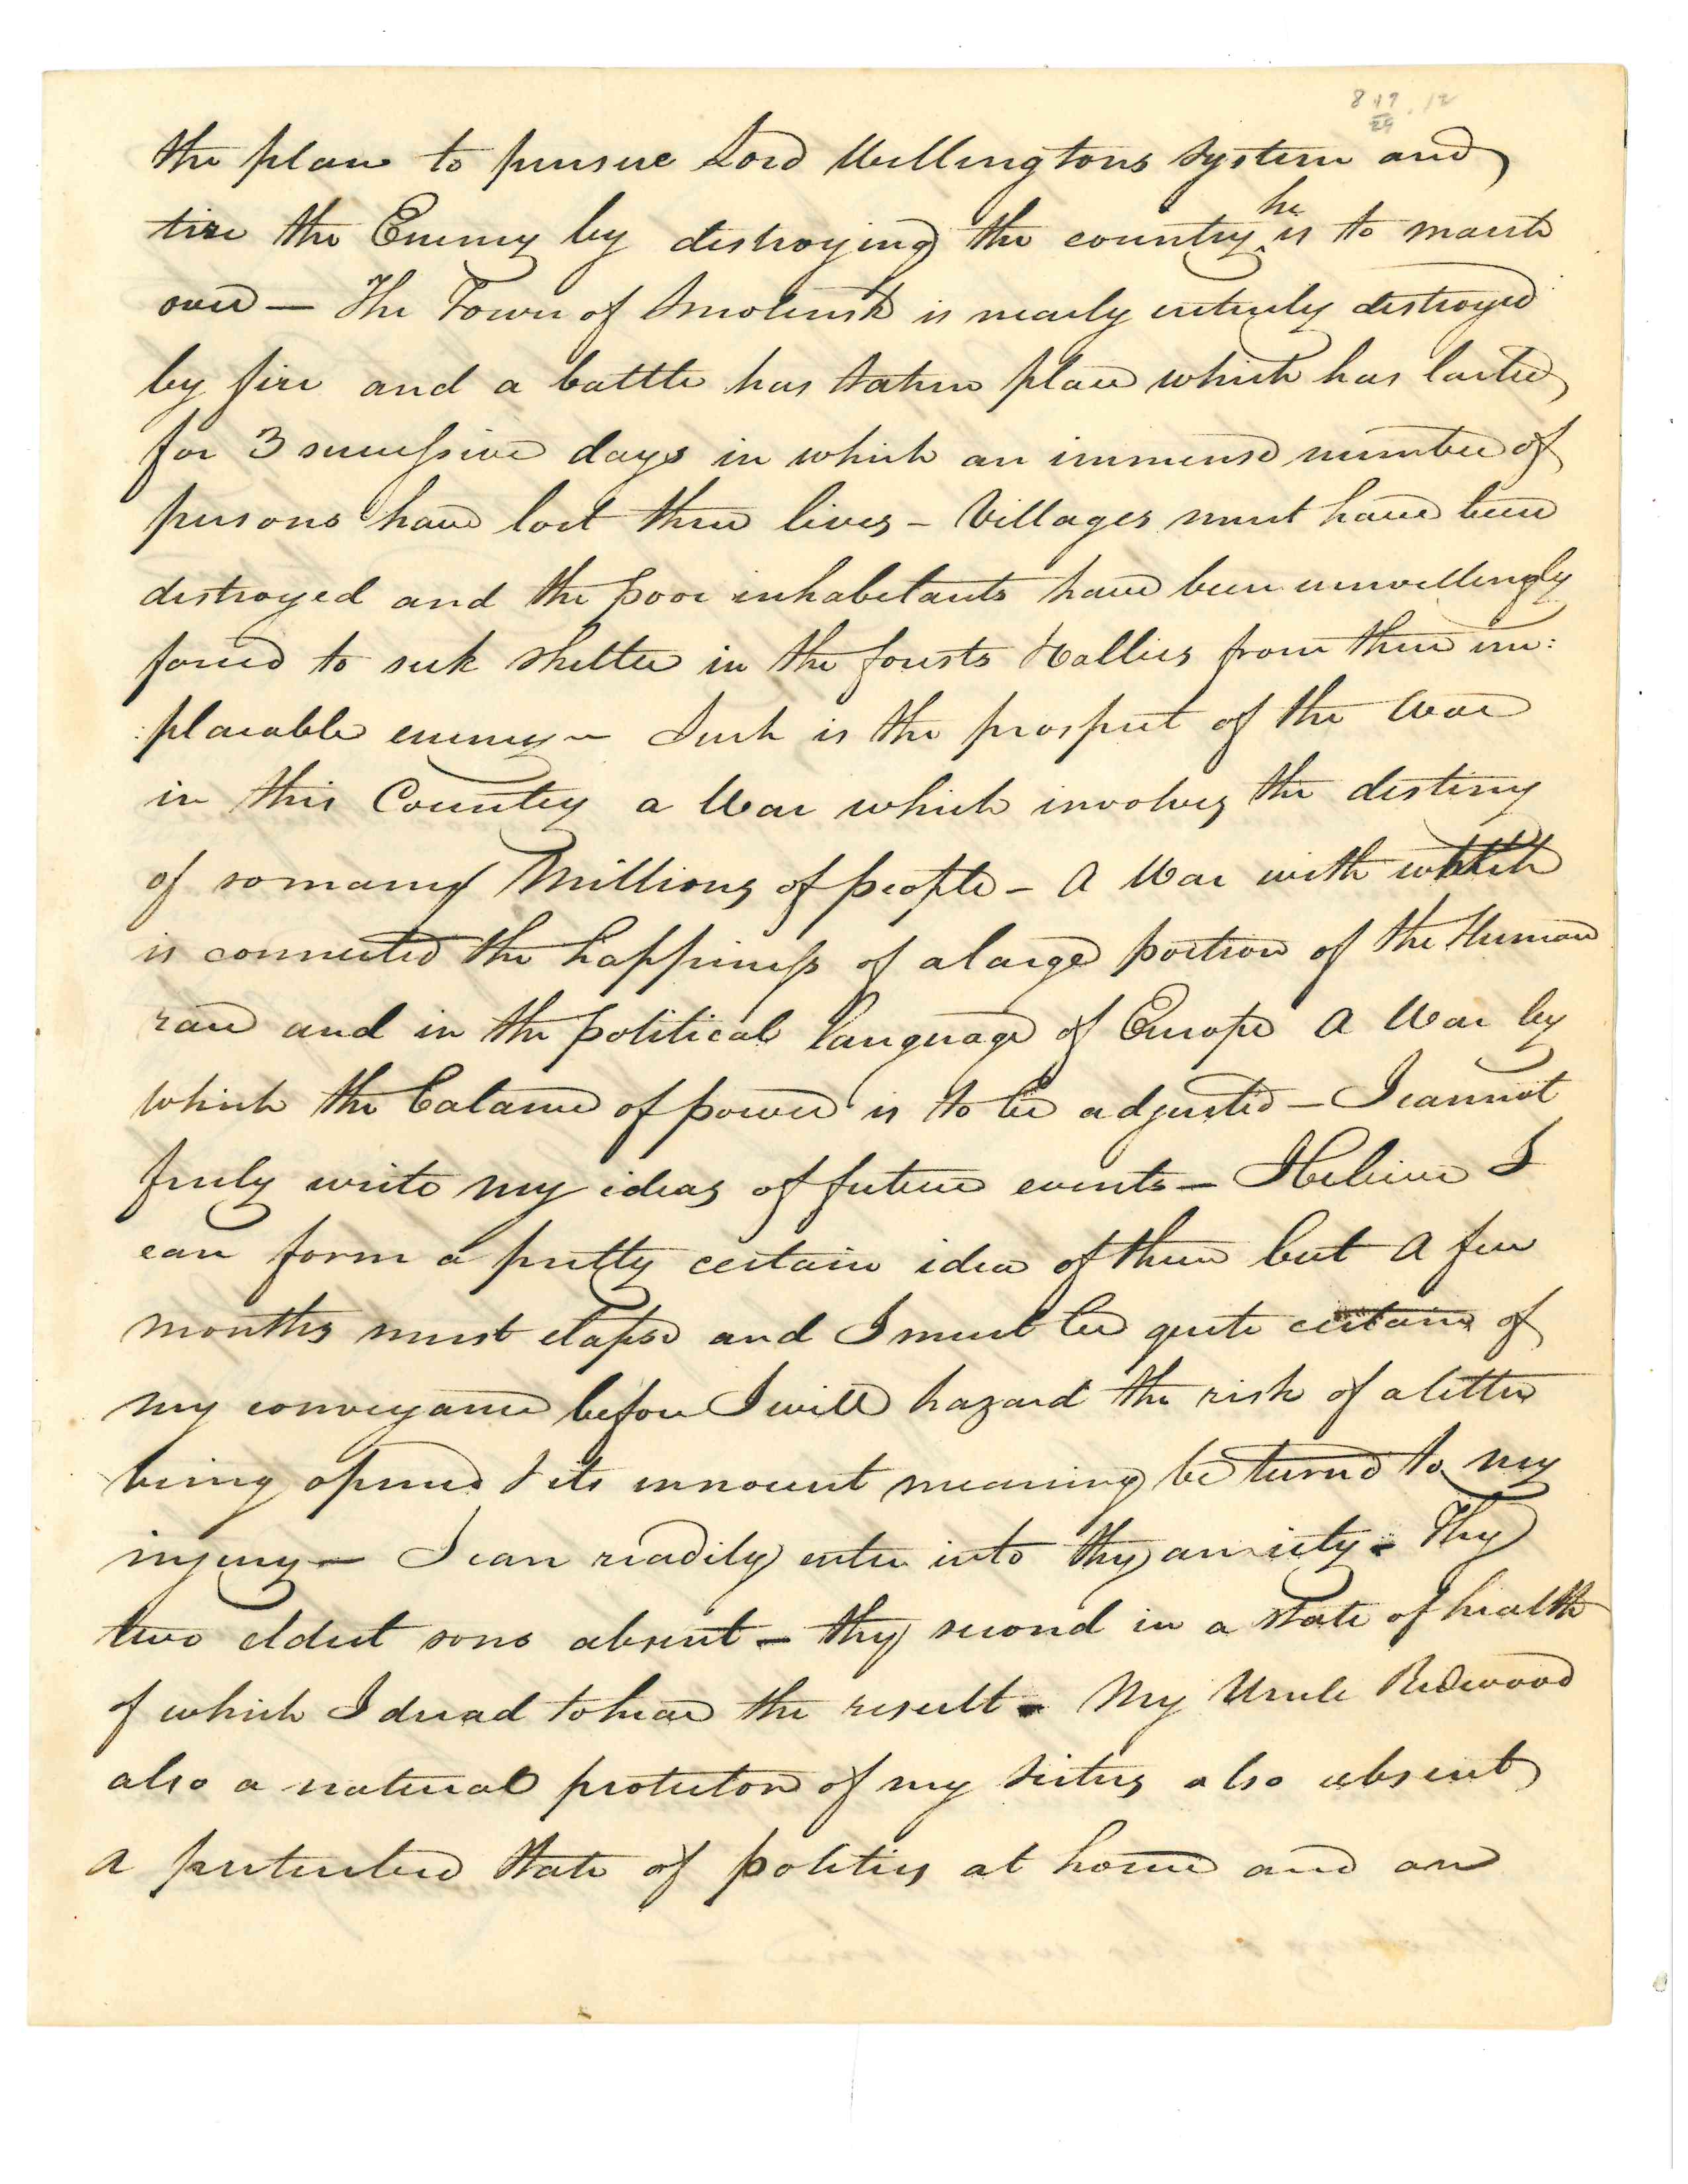 8 17 . 12
29
the plan to pursue Lord Wellingtons system and
tire the Enemy by destroying the country he is to march
over — The Town of Smolensk is nearly entirely destroyed
by fire and a battle has taken place which has lasted
for 3 successive days in which an immense number of
persons have lost their lives – Villages must have been
destroyed and the poor inhabitants have been unwillingly
forced to seek shelter in the forests & vallies from their im:
:placable enemy – Such is the prospect of the War
in this Country a War which involves the destiny
of so many Millions of people – A War with which
is connected the happiness of a large portion of the Human
race and in the political language of Europe A War by
which the balance of power is to be adjusted – I cannot
freely write my ideas of future events – I believe I
can form a pretty certain idea of them but A few
months must elapse and I must be quite certain of
my conveyance before I will hazard the risk of a letter
being opened & its innocent meaning be turned to my
injury – I can readily enter into thy anxiety – Thy
two eldest sons absent – thy second in a state of health
of which I dread to hear the result – My Uncle Redwood
also a natural protector of my sisters also absent
A state of politics at home and an